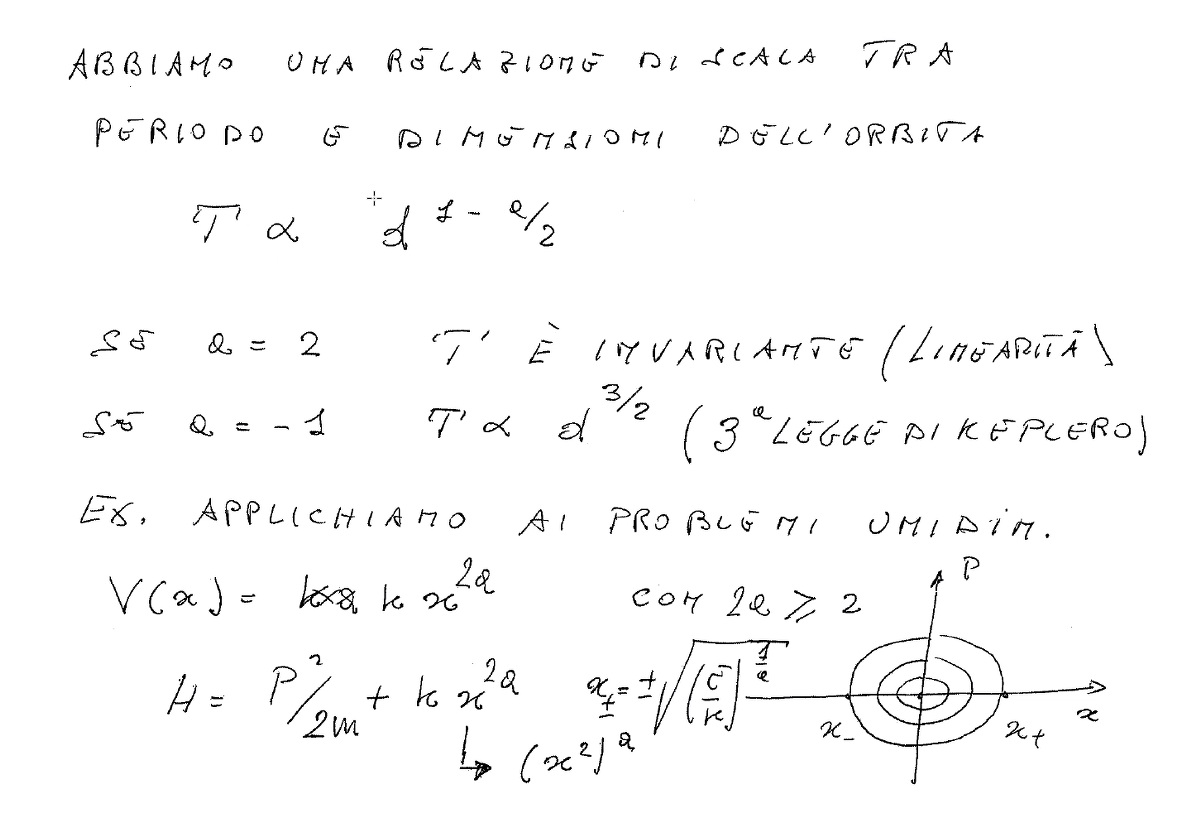 ABBIAMO UNA RELAZIONE DI SCALA TRA
PERIODO E DIMENSIONI DELL'ORBITA
T ∝ d^{1 - a/2}
SE a = 2 T È INVARIANTE (LINEARITÀ)
SE a = -1 T ∝ d^{3/2} (3ª LEGGE DI KEPLERO)
EX. APPLICHIAMO AI PROBLEMI UNIDIM.
V(x) = k x^{2a} CON 2a ⩾ 2
P
H = P²/2m + k x^{2a} x_± = ± √(E/k)^{1/a}
x_- x_+ x
↳ (x²)^a